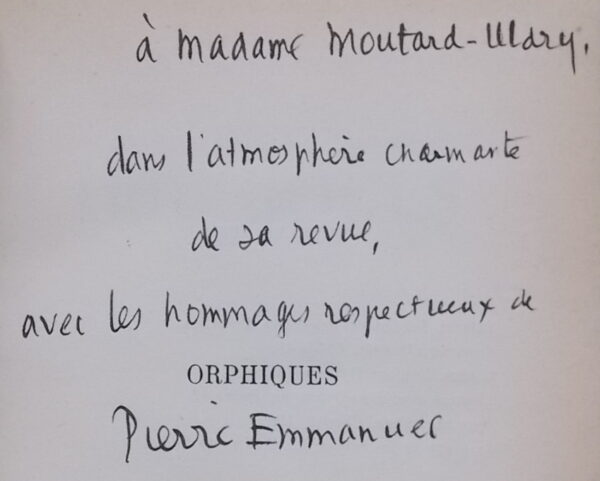 à madame Moutard-Uldry,
dans l'atmosphère charmante
de sa revue,
avec les hommages respectueux de
ORPHIQUES
Pierre Emmanuel